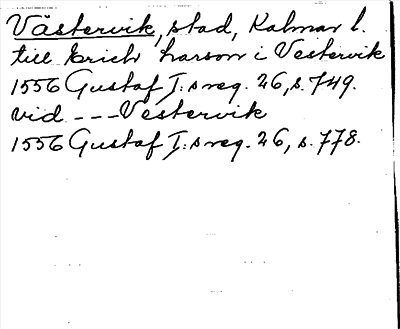 Västervik, stad, Kalmar l.
till Erich Larson i Vestervik
1556 Gustaf I:s reg. 26, s. 749.
vid --- Vestervik
1556 Gustaf I:s reg. 26, s. 778.